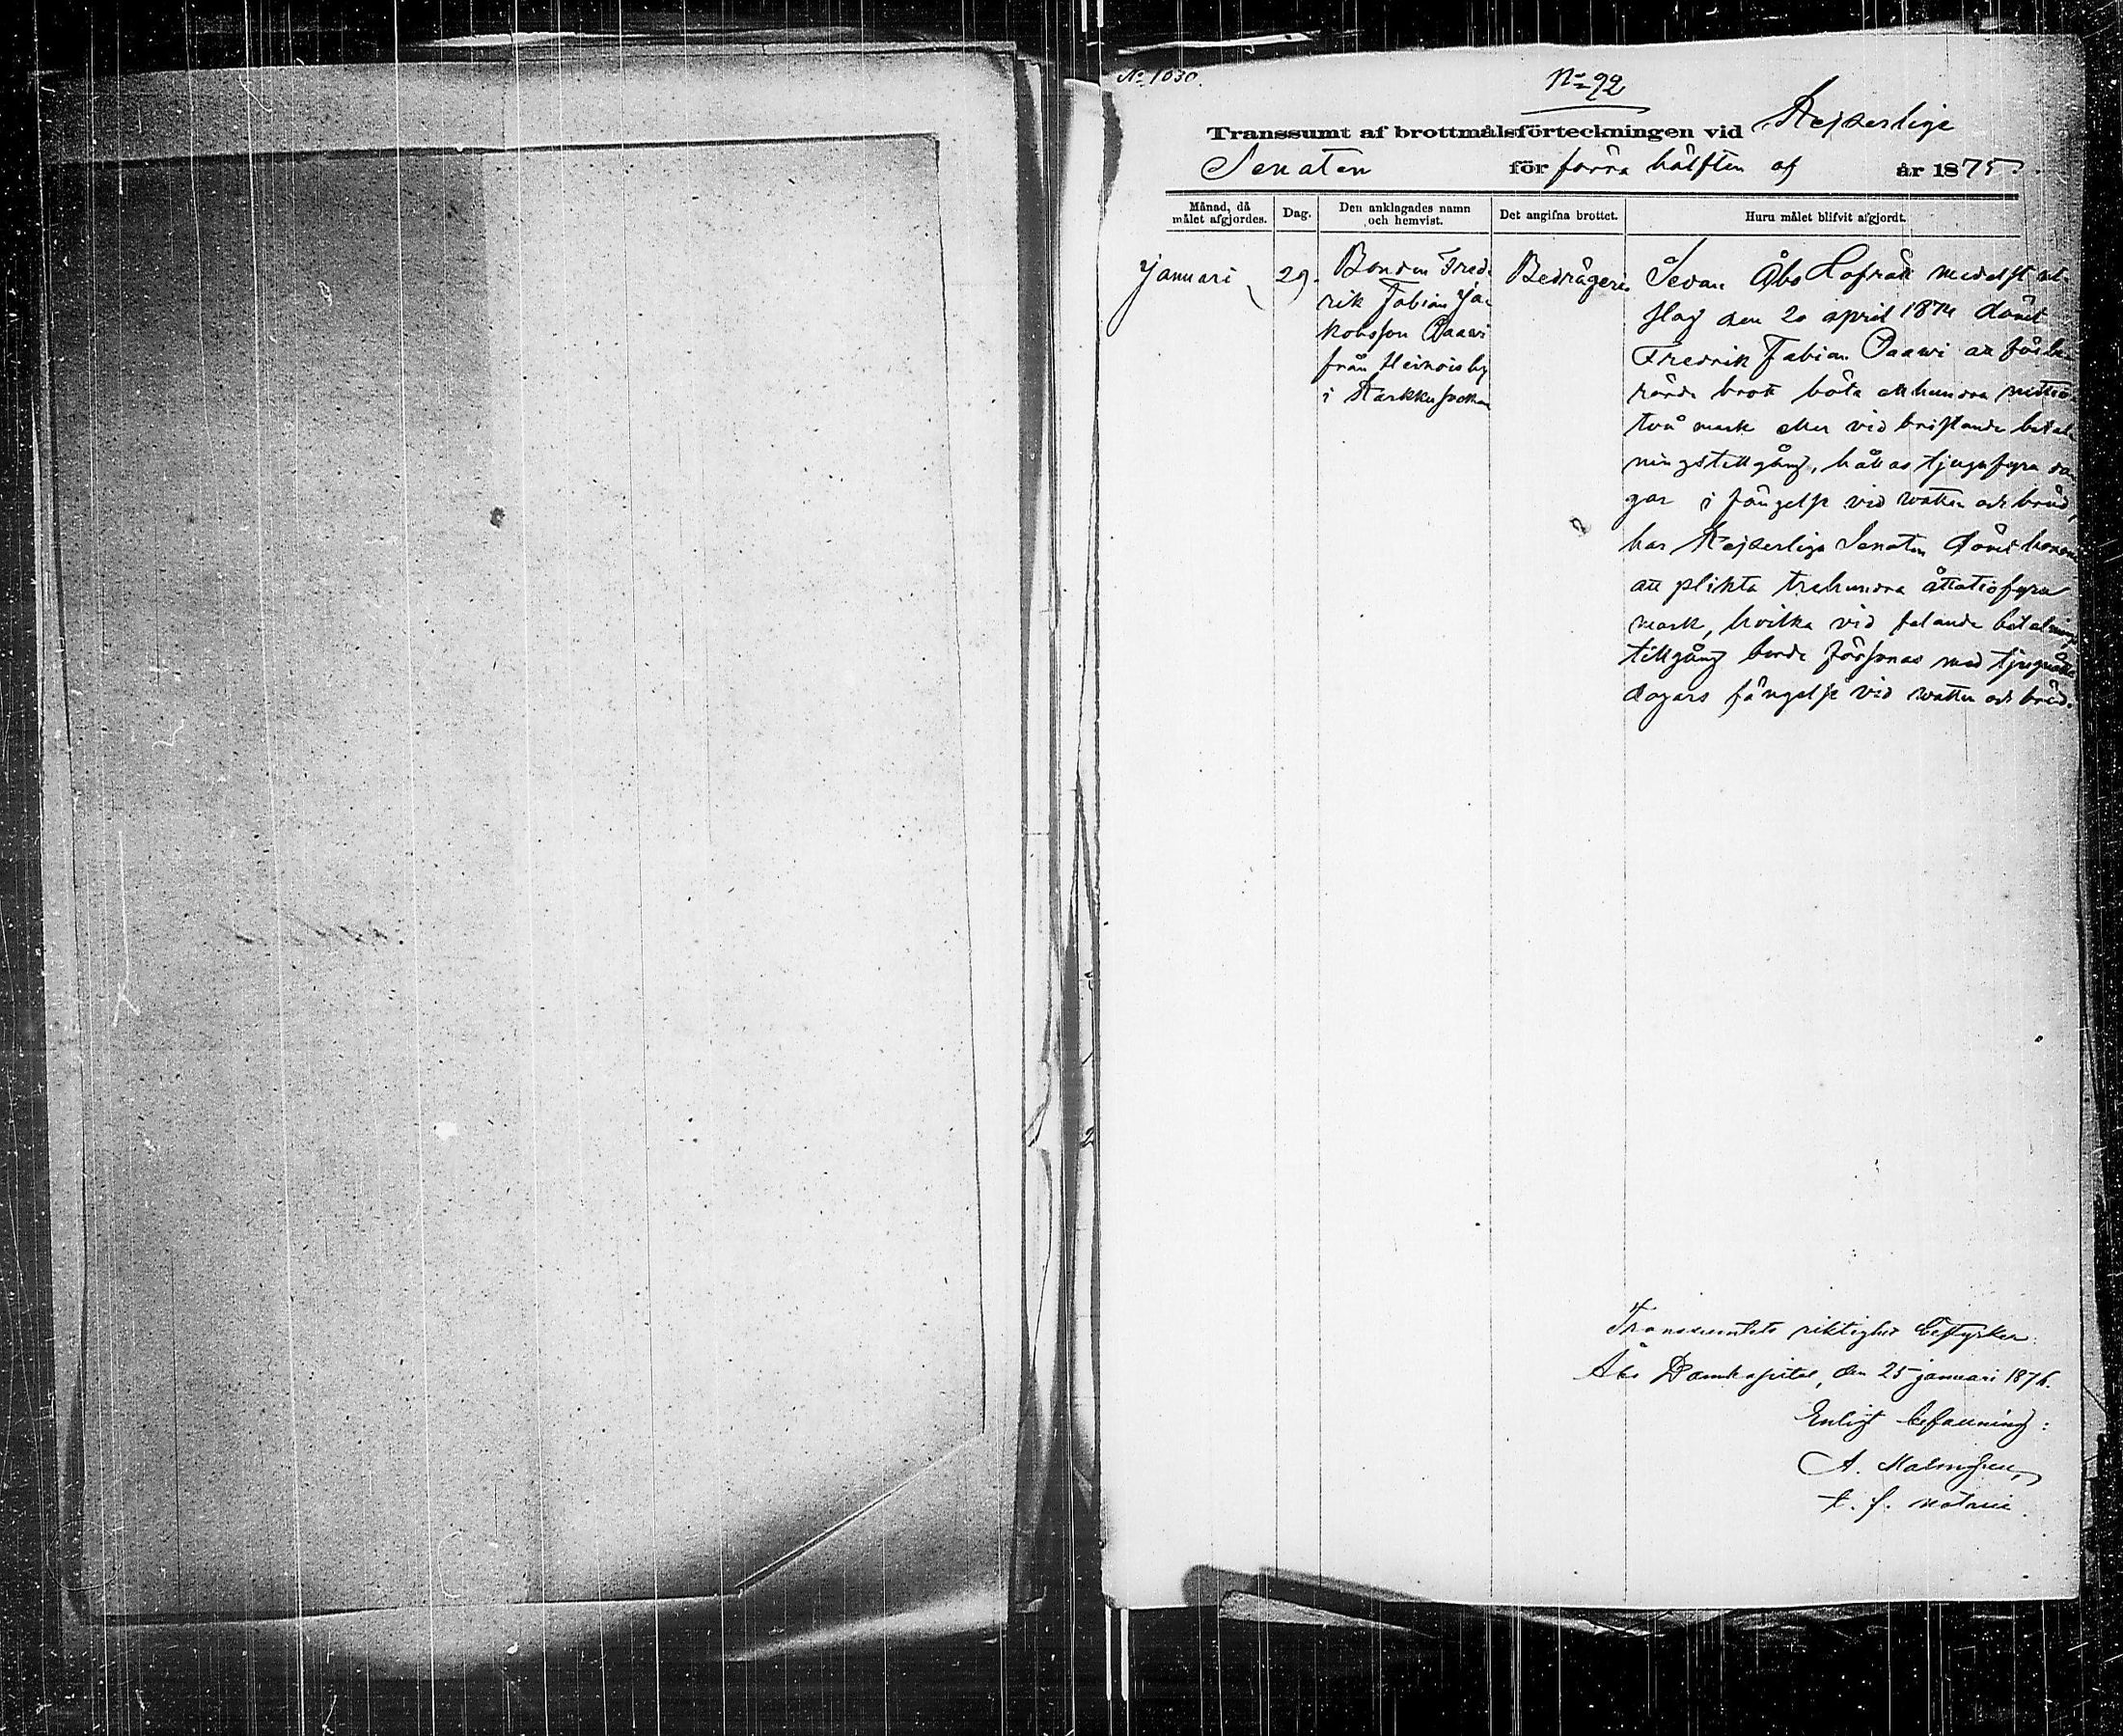 No 1030.
No 92
Transsumt af brottmålsförteckningen vid Kejserlige
Senaten för förra hälften af år 1875.
Månad, då målet afgjordes.
Dag.
Den anklagades namn och hemvist.
Det angifna brottet.
Huru målet blifvit afgjordt.
Januari
29.
Bonden Fred-
rik Fabian Ja-
kobsson Paavi
från Heinois by
i Karkku socken
Bedrägeri.
Sedan Åbo Hofrätt medelst ut-
slag den 20 april 1874 dömt
Fredrik Fabian Paavi att för be-
rörde brott böta etthundra nittio-
två mark eller vid bristande betal-
ningstillgång, hållas tjugufyra da-
gar i fängelse vid watten och bröd,
har Kejserliga Senaten dömt honom
att plikta trehundra åttatiofyra
mark, hvilka vid felande betalnings
tillgång borde försonas med tjuguåtta
dagars fängelse vid watten och bröd.
Transsumtets riktighet bestyrker:
Åbo Domkapitel, den 25 januari 1876.
Enligt befallning:
A. Malmgren,
t. f. notarie.